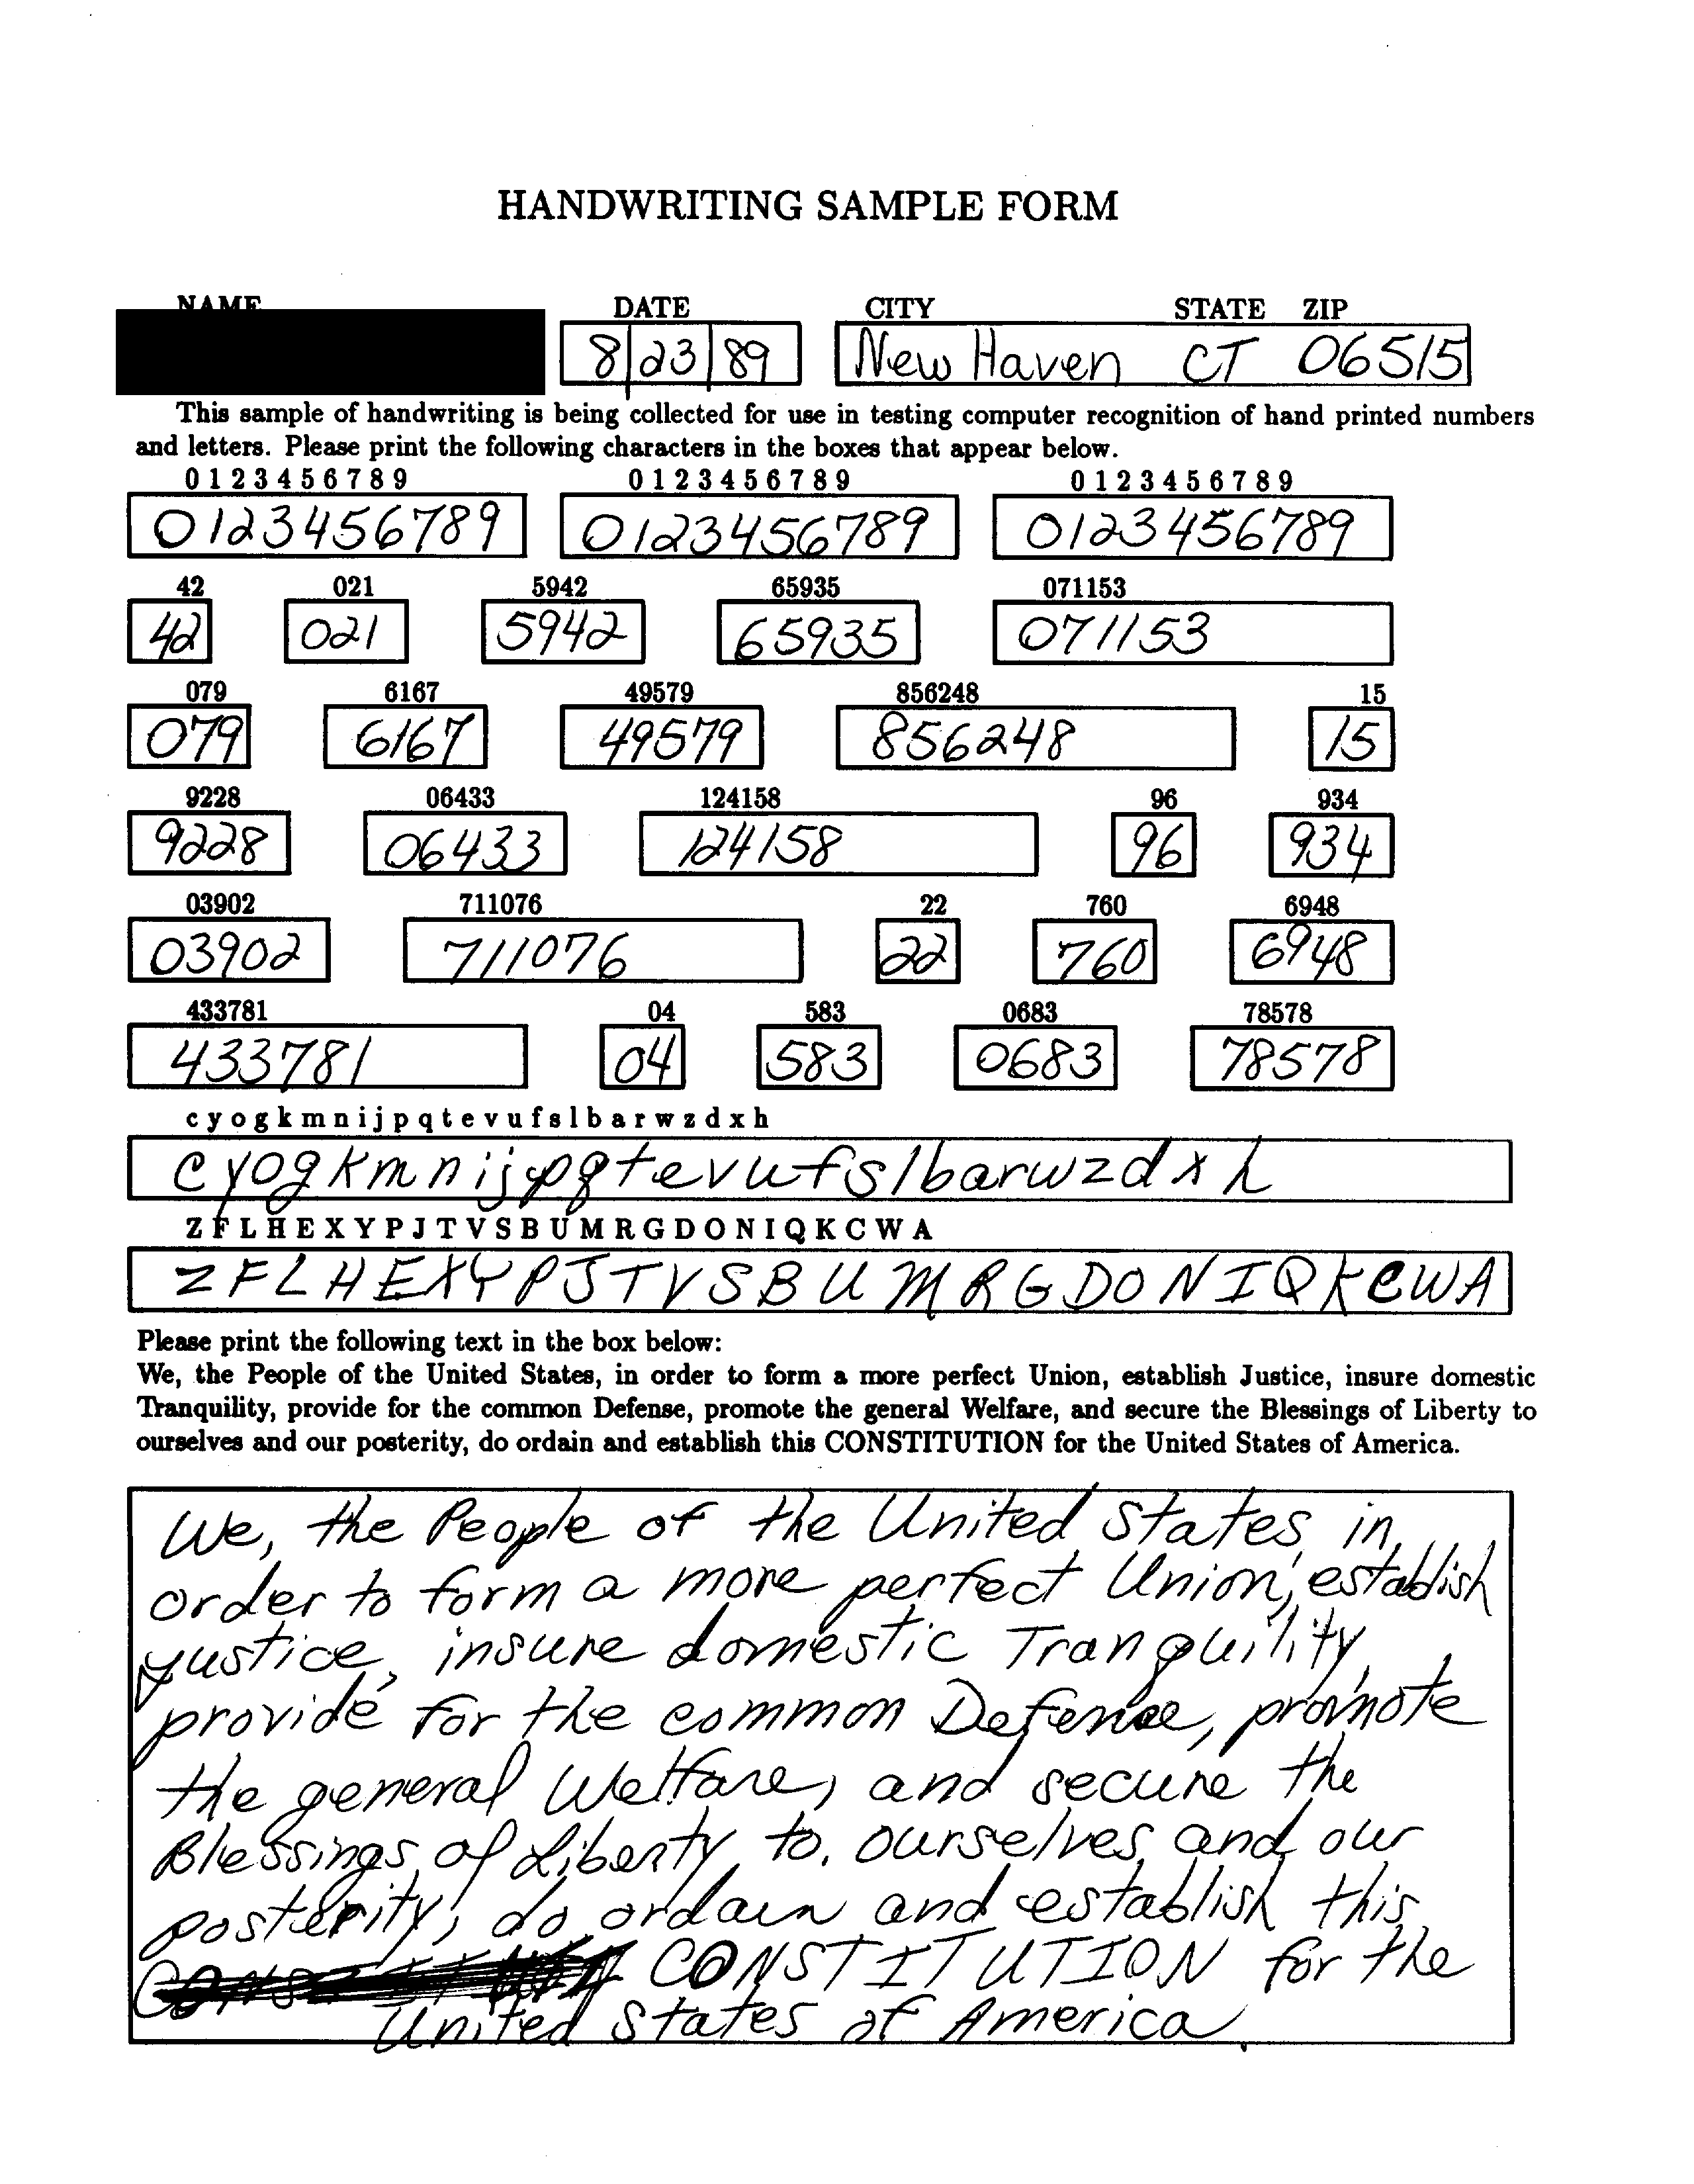 HANDWRITING SAMPLE FORM
NAME DATE CITY STATE ZIP
8/23/89 New Haven CT 06515
This sample of handwriting is being collected for use in testing computer recognition of hand printed numbers
and letters. Please print the following characters in the boxes that appear below.
0 1 2 3 4 5 6 7 8 9 0 1 2 3 4 5 6 7 8 9 0 1 2 3 4 5 6 7 8 9
0123456789 0123456789 0123456789
42 021 5942 65935 071153
42 021 5942 65935 071153
079 6167 49579 856248 15
079 6167 49579 856248 15
9228 06433 124158 96 934
9228 06433 124158 96 934
03902 711076 22 760 6948
03902 711076 22 760 6948
433781 04 583 0683 78578
433781 04 583 0683 78578
c y o g k m n i j p q t e v u f s l b a r w z d x h
c y o g k m n i j p q t e v u f s l b a r w z d x h
Z F L H E X Y P J T V S B U M R G D O N I Q K C W A
Z F L H E X Y P J T V S B U M R G D O N I Q K C W A
Please print the following text in the box below:
We, the People of the United States, in order to form a more perfect Union, establish Justice, insure domestic
Tranquility, provide for the common Defense, promote the general Welfare, and secure the Blessings of Liberty to
ourselves and our posterity, do ordain and establish this CONSTITUTION for the United States of America.
We, the People of the United States, in
order to form a more perfect Union, establish
justice, insure domestic Tranquility,
provide for the common Defense, promote
the general Welfare, and secure the
Blessings of Liberty to ourselves and our
posterity, do ordain and establish this
CONSTITUTION for the
United States of America.